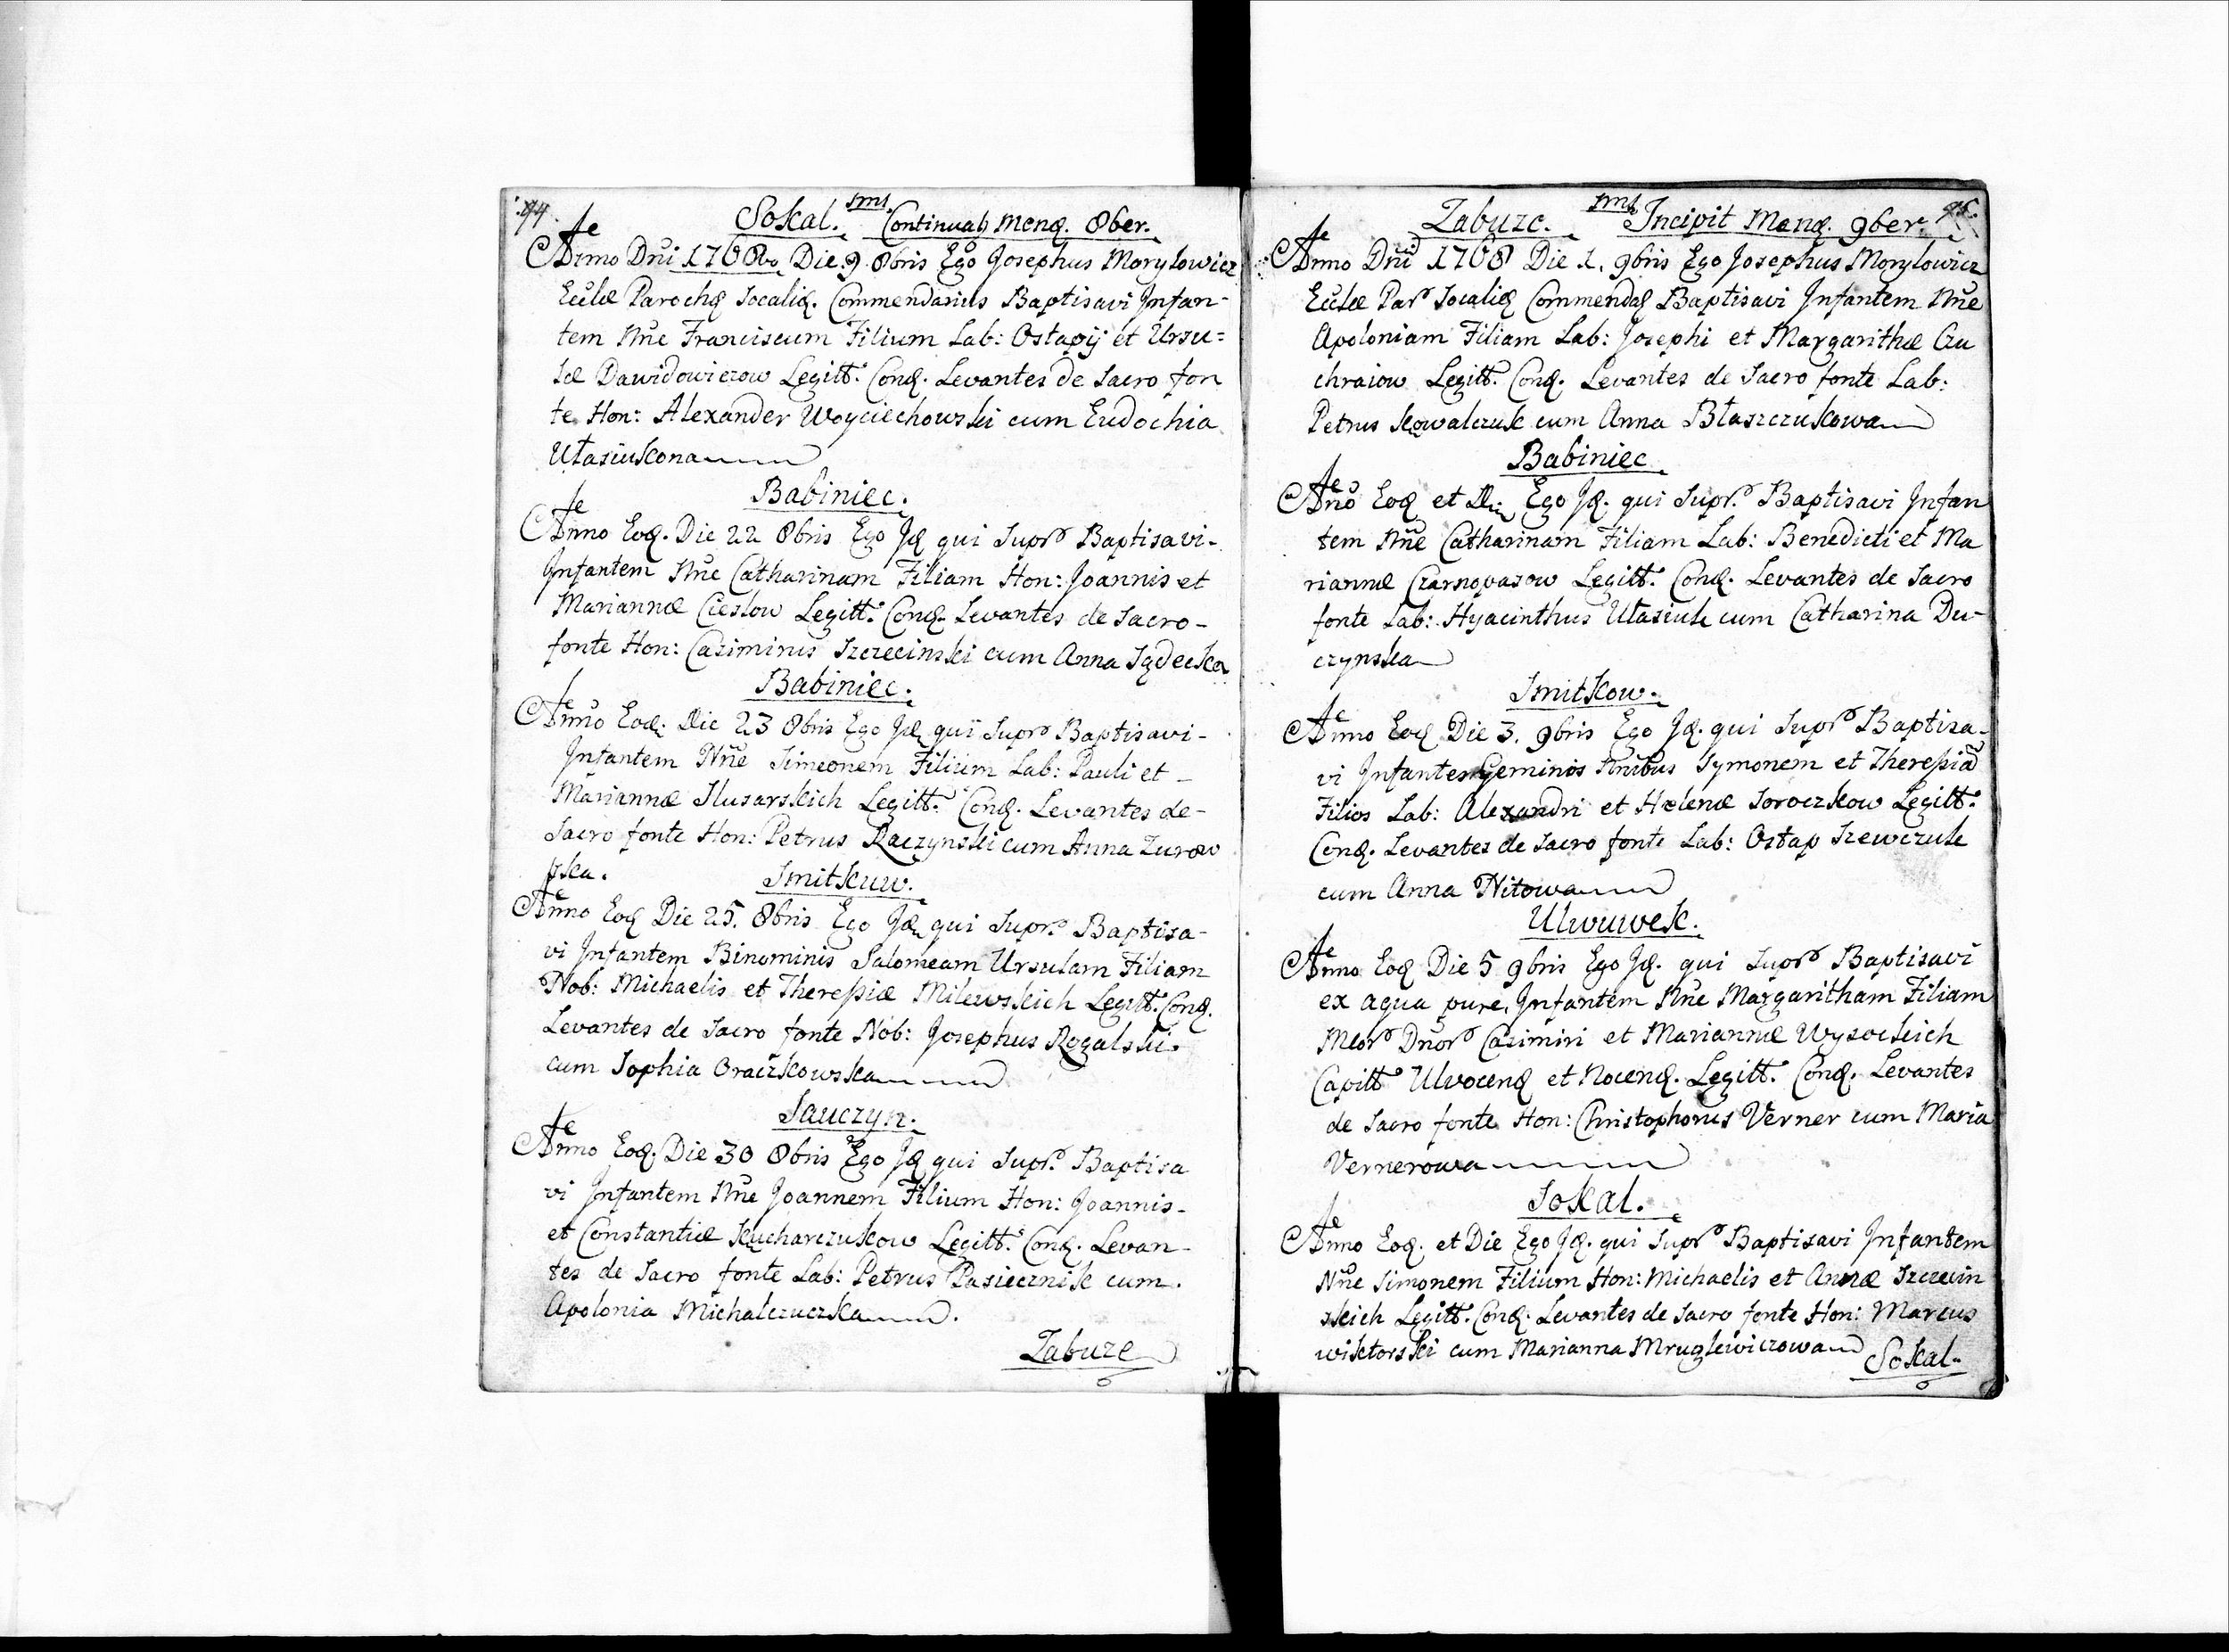 94.
Sokal. Continuat Menq. 8ber.
Anno Dni 1768vo Die 9 8bris Ego Josephus Morylowicz
Eccłæ Parochq Socaliq. Commendarius Baptisavi Infan-
tem Nne Franciscum Filium Lab: Ostapij et Ursu=
læ Dawidowiczow Legitt. Conq. Levantes de Sacro fon
te Hon: Alexander Woyciechowski cum Eudochia
Utasiukona
Babiniec.
Anno Eoq. Die 22 8bris Ego Jq qui Supr Baptisavi-
Infantem Nne Catharinam Filiam Hon: Joannis et
Mariannæ Cieslow Legitt. Conq. Levantes de Sacro-
fonte Hon: Casimirus Szczecinski cum Anna Sądecka
Babiniec.
Anno Eoq. Die 23 8bris Ego Jq qui Supr Baptisavi-
Infantem Nne Simeonem Filium Lab: Pauli et -
Mariannæ Slusarskich Legitt. Conq. Levantes de-
Sacro fonte Hon: Petrus Raczynski cum Anna Zurow
ska.
Smitkuw.
Anno Eoq Die 25. 8bris Ego Jq qui Supr. Baptisa-
vi Infantem Binominis Salomeam Ursulam Filiam
Nob: Michaelis et Theresiæ Milewskich Legitt. Conq.
Levantes de Sacro fonte Nob: Josephus Rogalski.
cum Sophia Oraczkowska
Sauczyn.
Anno Eoq. Die 30 8bris Ego Jq qui Supr. Baptisa
vi Infantem Nne Joannem Filium Hon: Joannis-
et Constantiæ Kucharczukow Legitt. Conq. Levan-
tes de Sacro fonte Lab: Petrus Pasiecznik cum.
Apolonia Michalczuczka.
Zabuze
Zabuze. Incipit Menq. 9ber.
Anno Dni 1768 Die 1. 9bris Ego Josephus Morylowicz
Eccłæ Par Socaliq Commendaq Baptisavi Infantem Nne
Apoloniam Filiam Lab: Josephi et Margarithæ Cru
chraiow Legitt. Conq. Levantes de Sacro fonte Lab:
Petrus Kowalczuk cum Anna Błaszczukowa
Babiniec
Ano Eoq et Die Ego Jq. qui Supr. Baptisavi Infan
tem Nne Catharinam Filiam Lab: Benedicti et Ma
riannæ Czarnopasow Legitt. Conq. Levantes de Sacro
fonte Lab: Hyacinthus Utasiuk cum Catharina Du-
czynska
Smitkow.
Anno Eoq Die 3. 9bris Ego Jq. qui Supr Baptisa-
vi Infantes Geminos Nnibus Symonem et Theresiã
Filios Lab: Alexandri et Helenæ Soroczkow Legitt.
Conq. Levantes de Sacro fonte Lab: Ostap Szewczuk
cum Anna Nitowa
Ulwuwek.
Anno Eoq Die 5 9bris Ego Jq. qui Supr Baptisavi
ex aqua pure, Infantem Nne Margaritham Filiam
Mcor Dnor Casimiri et Mariannæ Wysockich
Capitt Ulvocenq et Nocenq. Legitt. Conq. Levantes
de Sacro fonte Hon: Christophorus Verner cum Maria
Vernerowa
Sokal.
Anno Eoq. et Die Ego Jq. qui Supr Baptisavi Infantem
Nne Simonem Filium Hon: Michaelis et Annæ Szczecin
skich Legitt. Conq. Levantes de Sacro fonte Hon: Marcus
wiktorski cum Marianna Mruglewiczowa
Sokal.